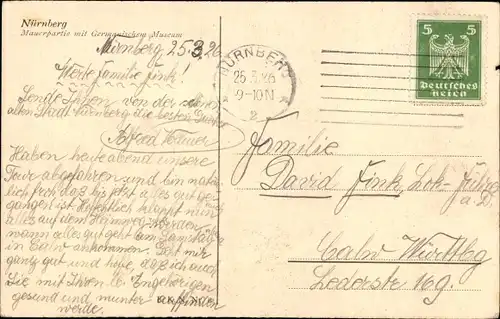 Nürnberg
Mauerpartie mit Germanischem Museum
Nürnberg 25.3.26
Werte Familie Fink!
Sende Ihnen von der schönen
alten Stadt Nürnberg die besten Grüße
Alfred
Haben heute abend unsere
Tour abgefahren und bin
froh daß bis jetzt alles gut
gangen ist. Hoffentlich klappt nun
alles auf dem Heimweg. Werden
wann alles gut geht am Samstag
in Calw ankommen. Geht mir
ganz gut und hoffe, daß ich auch
Sie mit Ihren lb. Engehörigen
gesund und munter
werde.
NÜRNBERG
25.3.26
9-10N
2
5 5
Deutsches
Reich
Familie
David Fink, Lok-Führer
a.D.
Calw Württbg
Lederstr 169.